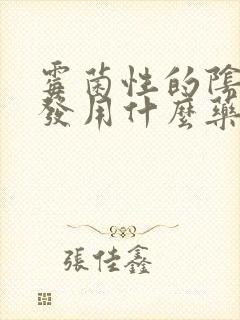 霉菌性的陰
發用什麼藥
張佳鑫